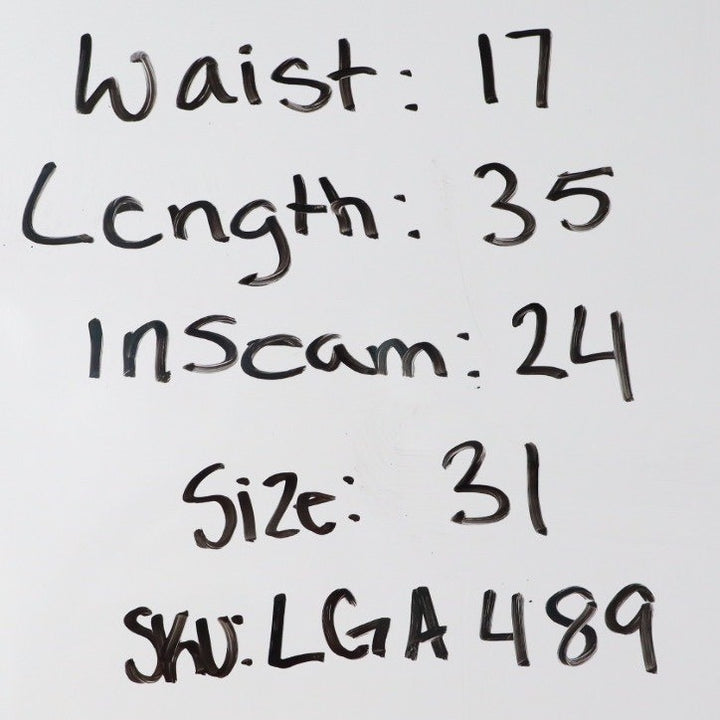 Waist: 17
Length: 35
Inseam: 24
Size: 31
SKU: LGA 489